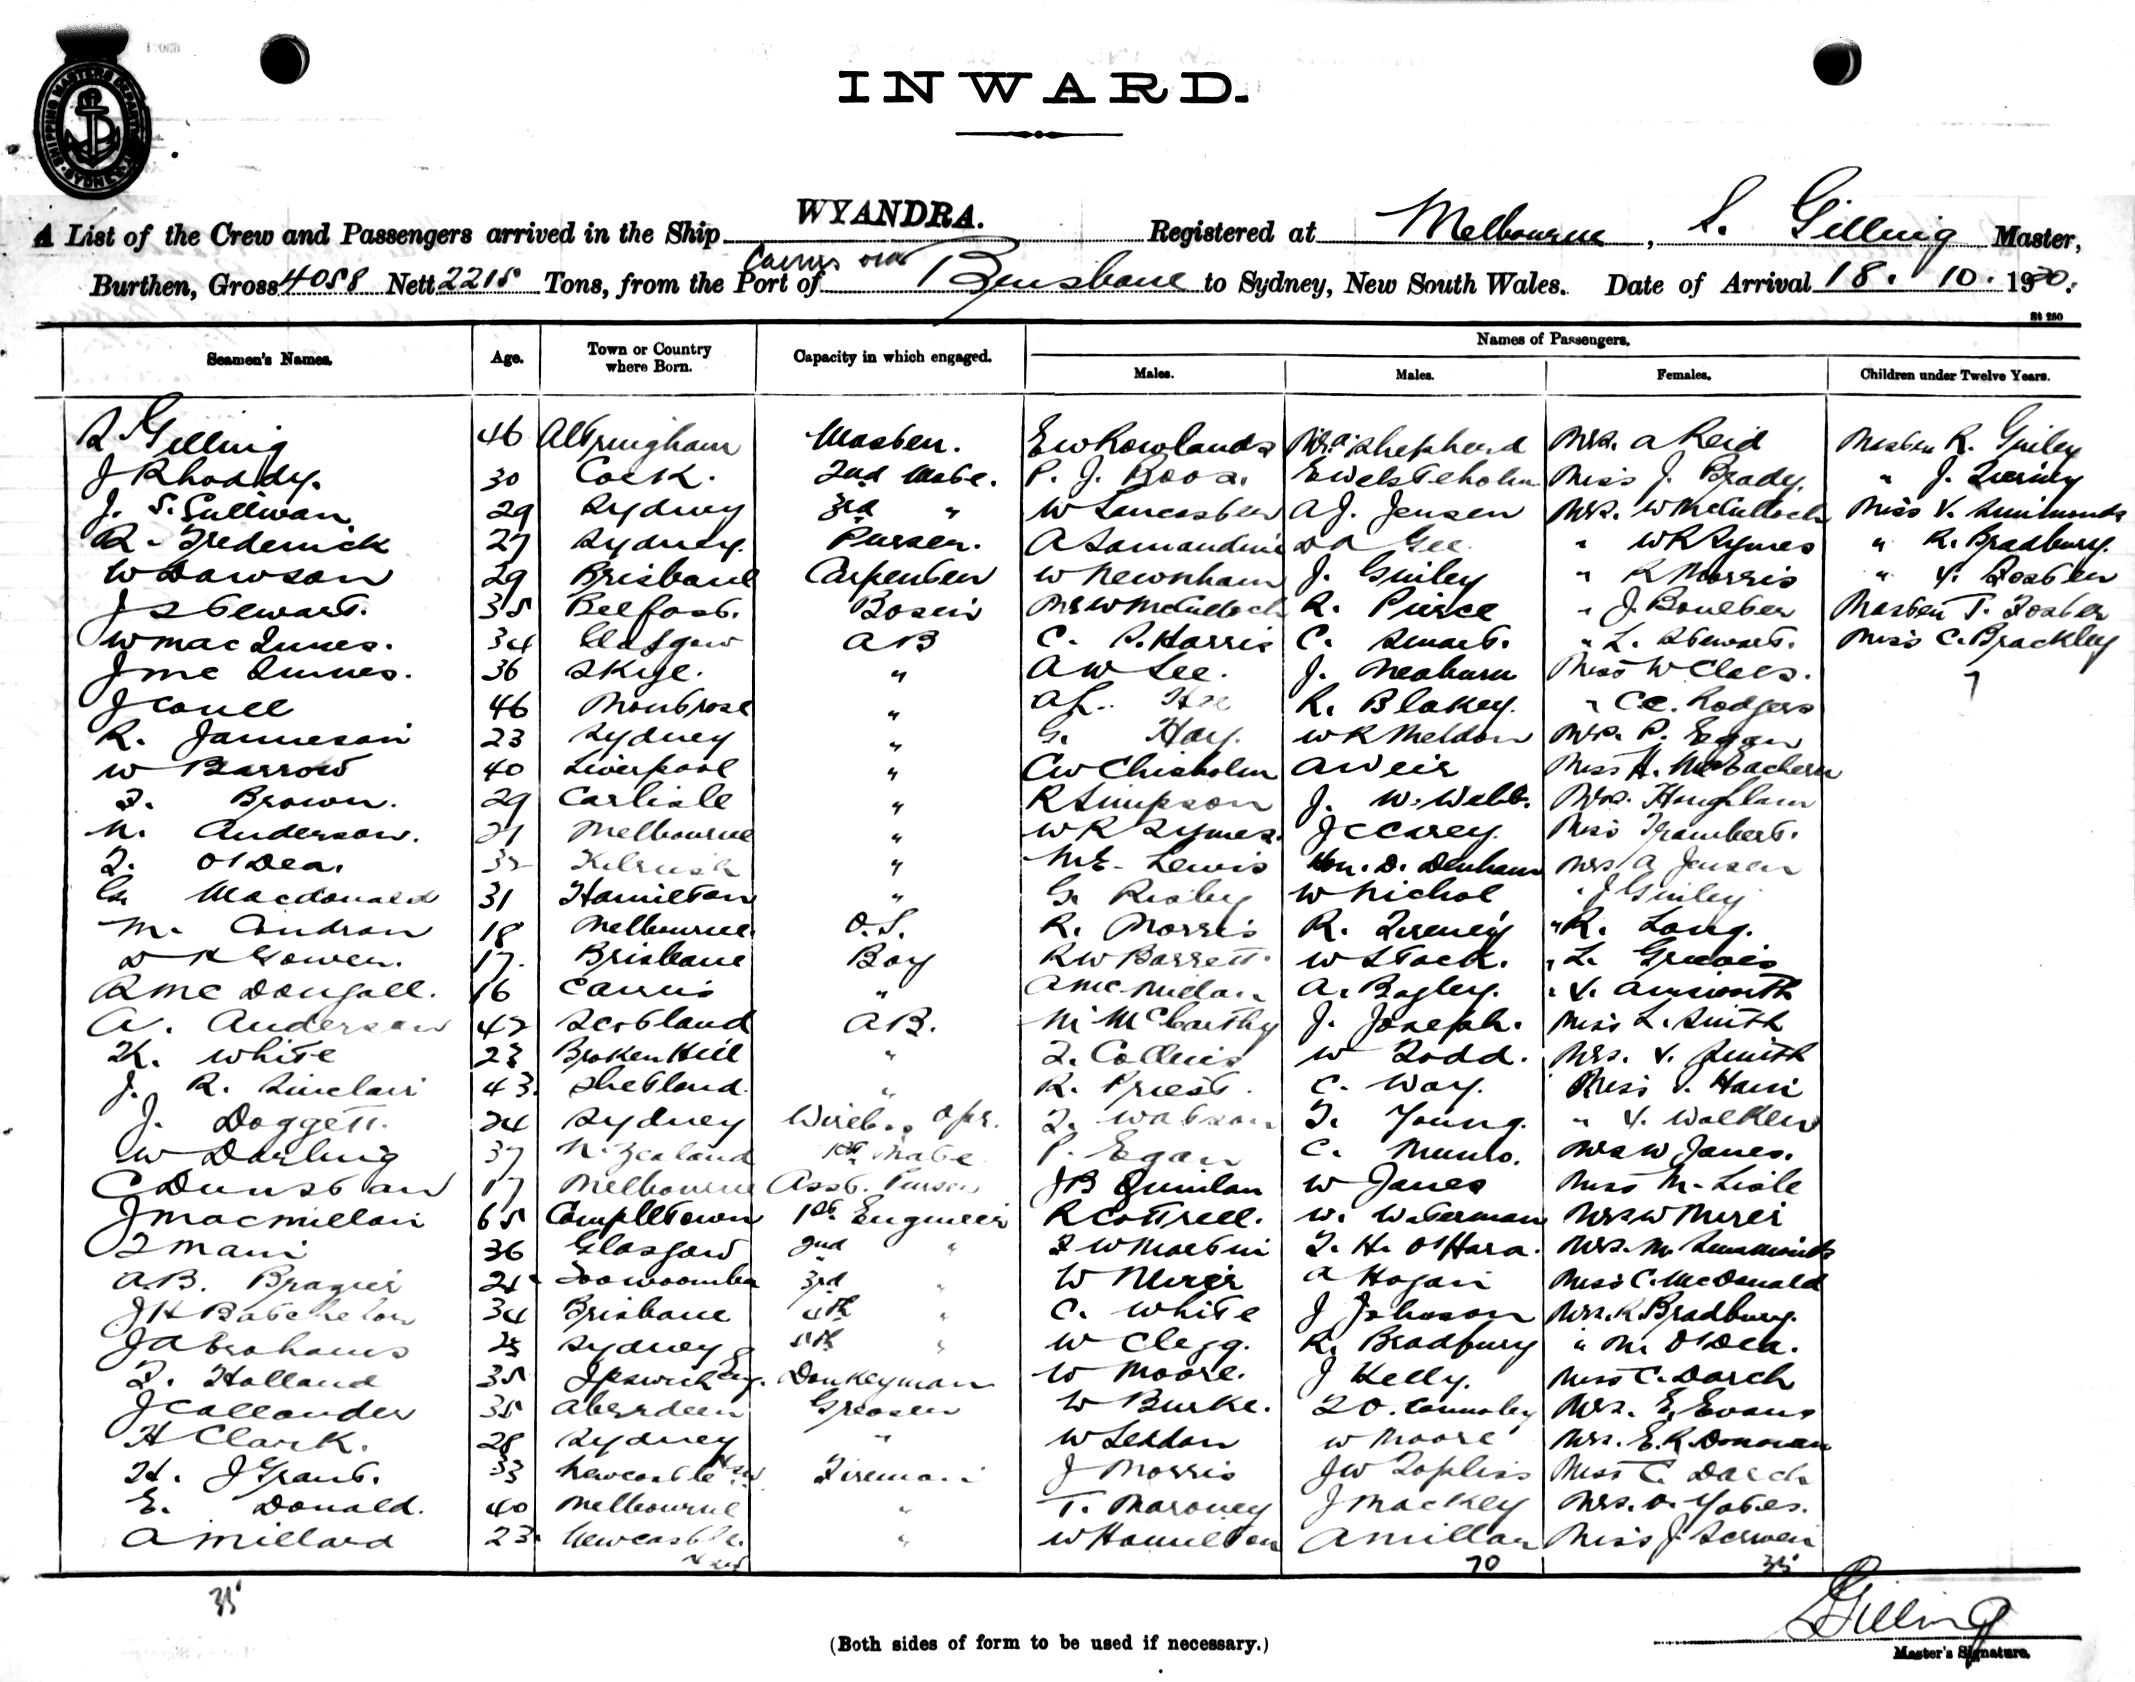 SHIPPING MASTERS DEPART
SYDNEY
INWARD.
A List of the Crew and Passengers arrived in the Ship WYANDRA. Registered at Melbourne, S. Gilling Master,
Burthen, Gross 4058 Nett 2215 Tons, from the Port of Cairns via Brisbane to Sydney, New South Wales. Date of Arrival 18. 10. 1920.
St 250
Seamen's Names. Age. Town or Country where Born. Capacity in which engaged. Names of Passengers.
Males. Males. Females. Children under Twelve Years.
S Gilling 46 Altringham Master. E W Rowlands Shepherd Mrs. A Reid Master R. Guiley
J Rhoddy. 30 Cork. 2nd Mate. P. J. Roos. E Welsteholm Miss J. Brady. " J.
J. S. Sullivan. 29 Sydney 3rd " W Lancaster A J. Jensen Mrs. W McCulloch Miss V. Simmonds
R. Frederick 27 Sydney. Purser. A Gee. " W R Symes " R. Bradbury.
W Dawson 29 Brisbane Carpenter W Newnham J. Guiley " R Morris " V. Foster
J Stewart. 35 Belfast. Bosin Mr W McCulloch R. Pierce " J. Boulter Master T. Foster
W MacInnes. 34 Glasgow AB C. S. Harris C. Smart. " L. Stewart. Miss C. Brackley
J McInnes. 36 Skye. " A W Lee. J. Meaburn Miss W Claes. 7
J Coull 46 Montrose " A L. R. Blakey. " Ce. Rodgers
R. Jamieson 23 Sydney " G. Hay. W R Meldon Mrs. P. Egan
W Barrow 40 Liverpool " C W Chisholm A Weir Miss H. McEachern
F. Brown. 29 Carlisle " R Simpson J. W. Webb. Mrs. Houghlam
N. Anderson. 21 Melbourne " W R Symes. J C Carey. Miss Trambert.
F. O'Dea. 32 Kilrush " M E. Lewis Hon. D. Denham Mrs A Jensen
G. Macdonald 31 Hamilton " G. Risby W Nichol " J Guiley
M. Condron 18 Melbourne. O.S. R. Morris R. " R. Long.
D R Gowen. 17. Brisbane Boy R W Barrett. W Stack. " L.
R McDougall. 16 Cairns " A McMillan A. Bagley. " V. Ainsworth
A. Anderson 42 Scotland AB. M McCarthy J. Joseph. Miss L. Smith
K. White 23 Broken Hill " F. Collins W Todd. Mrs. V. Smith
J. R. Sinclair 43. Shetland. " R. Priest. C. Way. Miss V. Ham
J. Doggett. 24 Sydney Wireless Opr. F. Watson F. Young. " V. Walker
W Darling 37 N. Zealand 1st Mate P. Egan C. Munro. Mrs W Janes.
C Dunstan 17 Melbourne Asst. Purser J B Quinlan W Janes Miss M. Lisle
J Macmillan 65 Camplltown 1st Engineer R Cottrell. W. Waterman Mrs W Merer
F Mann 36 Glasgow 2nd " F W Martin F. H. O'Hara. Mrs. M. Simmonds
A.B. Brazier 25 Toowoomba 3rd " W Merer A Hogan Miss C. McDonald
J H Batchelor 34 Brisbane 4th " C. White J Johnson Mrs. R Bradbury.
J Abrahams 25 Sydney 5th " W Clegg. R. Bradbury " M O'Dea.
F. Holland 35 Ipswich Eng. Donkeyman W Moore. J Kelly. Miss C. Darch
J Callander 35 Aberdeen Greaser W Burke. F O. Connoley Mrs. E. Evans
H Clark. 28 Sydney " W Seddon W Moore Mrs. E. R. Donovan
H. J Grant. 33 Newcastle NSW Fireman J Morris J W Topliss Miss C. Darch
E. Donald. 40 Melbourne " T. Maroney J Mackey Mrs. A. Yates.
A Millard 23. Newcastle. NSW " W Hamilton A Millar Miss J
70 35
35
S Gilling
(Both sides of form to be used if necessary.)
Master's Signature.